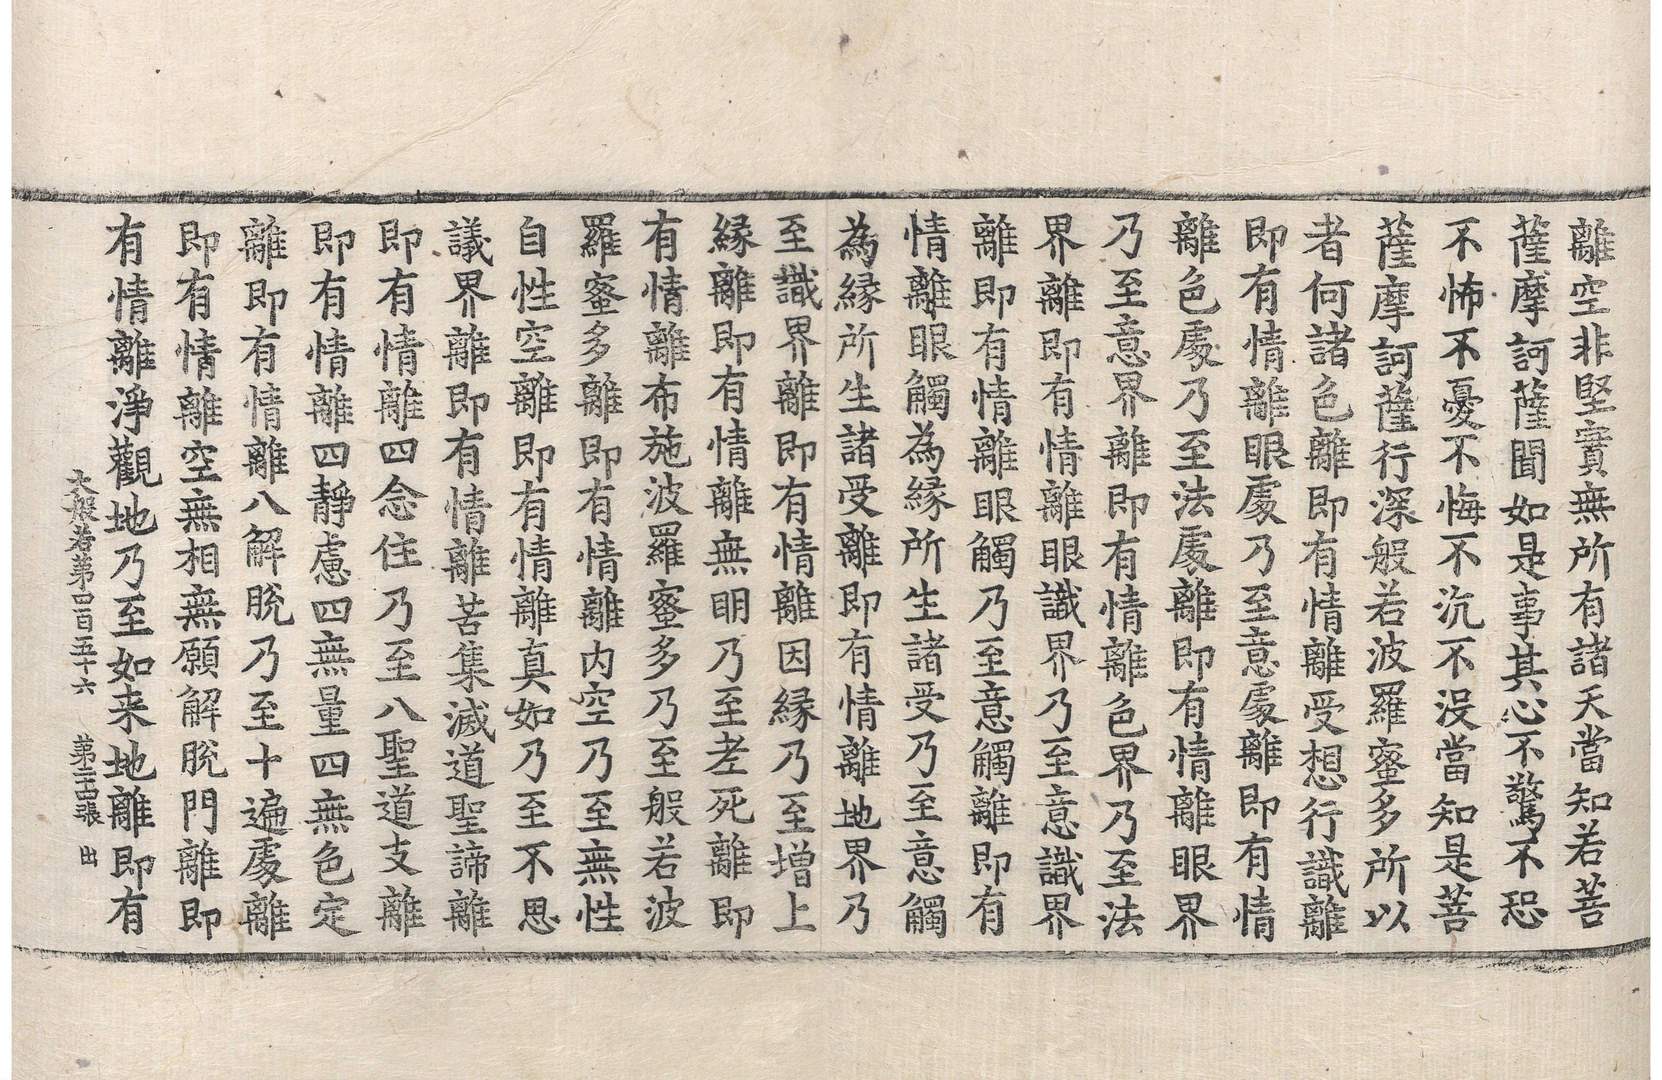 離空非堅實無所有諸天當知若菩
薩摩訶薩聞如是事其心不驚不恐
不怖不憂不悔不沉不没當知是菩
薩摩訶薩行深般若波羅蜜多所以
者何諸色離即有情離受想行識離
即有情離眼處乃至意處離即有情
離色處乃至法處離即有情離眼界
乃至意界離即有情離色界乃至法
界離即有情離眼識界乃至意識界
離即有情離眼觸乃至意觸離即有
情離眼觸為縁所生諸受乃至意觸
為縁所生諸受離即有情離地界乃
至識界離即有情離因縁乃至增上
縁離即有情離無明乃至老死離即
有情離布施波羅蜜多乃至般若波
羅蜜多離即有情離内空乃至無性
自性空離即有情離真如乃至不思
議界離即有情離苦集滅道聖諦離
即有情離四念住乃至八聖道支離
即有情離四靜慮四無量四無色定
離即有情離八解脫乃至十遍處離
即有情離空無相無願解脫門離即
有情離淨觀地乃至如来地離即有
大般若第四百五十六 第二十四張 出